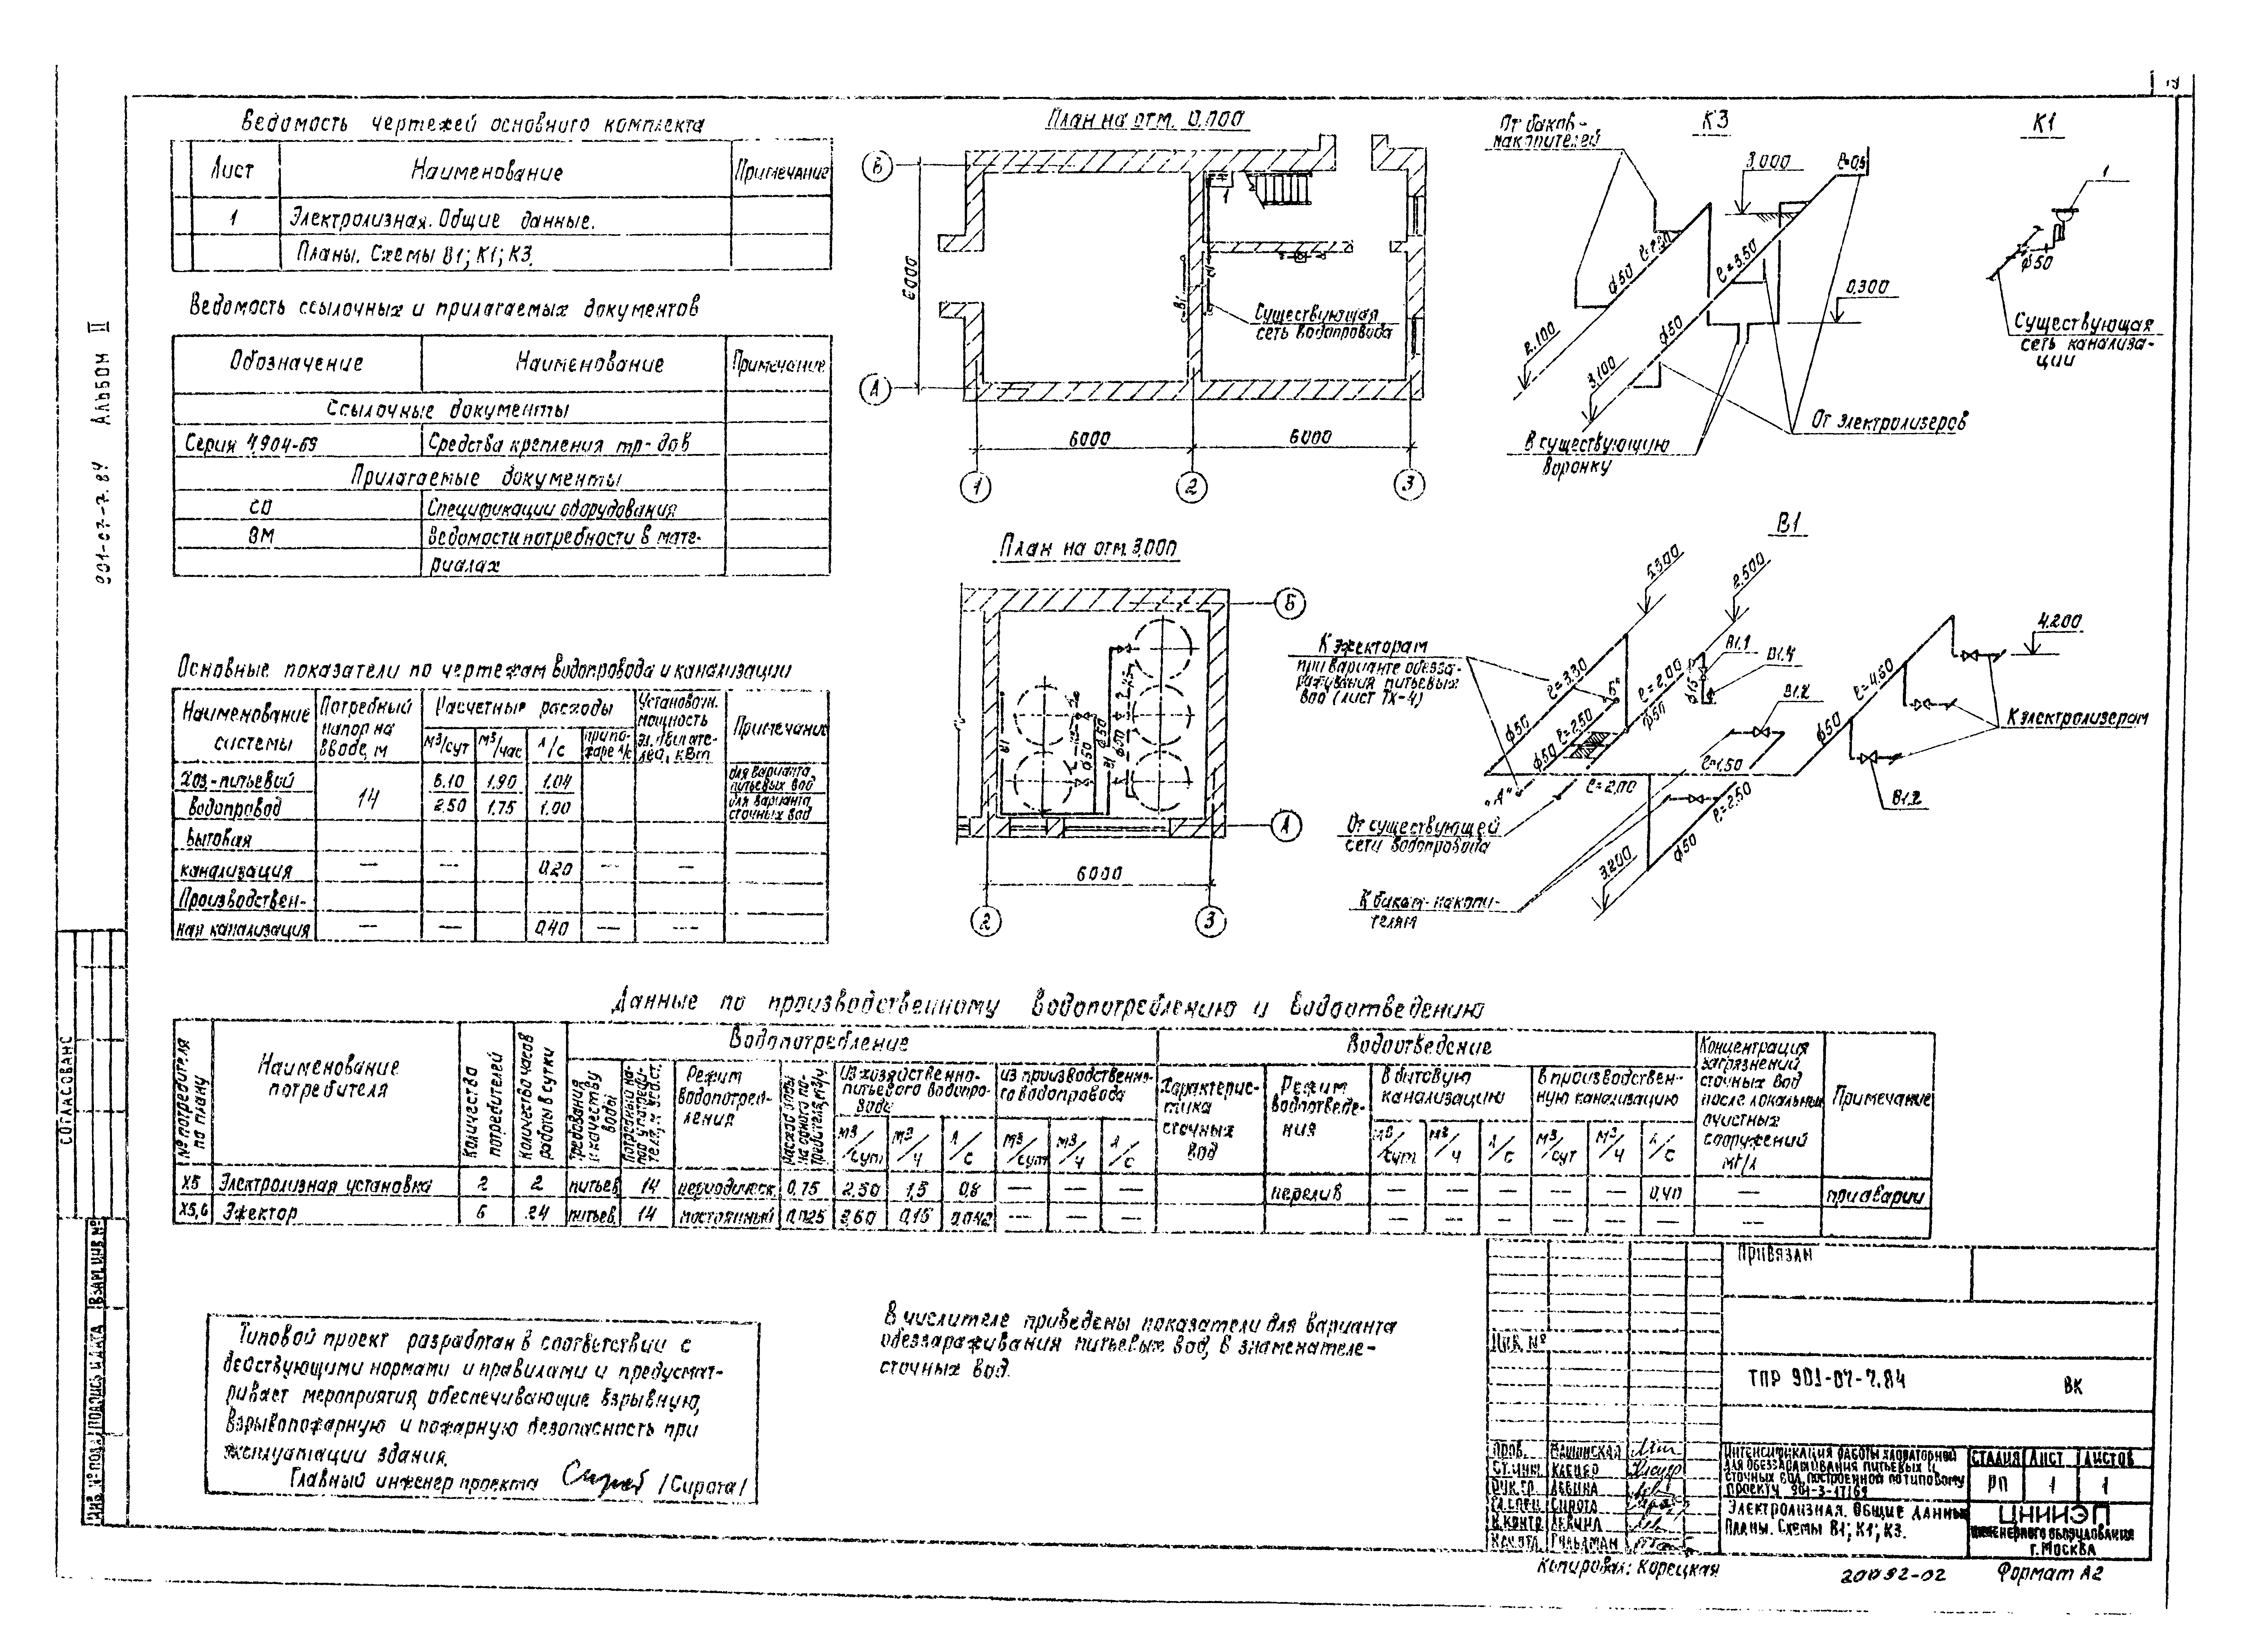 19
Ведомость чертежей основного комплекта
Лист Наименование Примечание
1 Электролизная. Общие данные.
Планы. Схемы В1; К1; К3.
Ведомость ссылочных и прилагаемых документов
Обозначение Наименование Примечание
Ссылочные документы
Серия 4.904-69 Средства крепления тр-дов
Прилагаемые документы
СО Спецификации оборудования
ВМ Ведомости потребности в мате-
риалах
Основные показатели по чертежам водопровода и канализации
Наименование системы
Потребный напор на вводе, м
Расчетные расходы
м3/сут м3/час л/с при пожаре л/с
Установочн. мощность эл. двигателей, кВт
Примечание
Хоз.-питьевой 6.10 1.90 1.04 для варианта питьевых вод
водопровод 14 2.50 1.75 1.00 для варианта сточных вод
Бытовая
канализация — — 0.20 — —
Производствен-
ная канализация — — 0.40 — —
План на отм. 0.000
Б
А
6000
В1
1
Существующая
сеть водопровода
6000 6000
1 2 3
План на отм. 3.000
Б
А
В1
ф50
6000
2 3
К3
От баков-
накопителей
3.000
ℓ=0.5
ф50
ℓ=3.50
ф50
0.300
2.100
3.100
От электролизеров
В существующую
воронку
К1
1
ф50
Существующая
сеть канализа-
ции
В1
5.300
2.500
К эжекторам
при варианте обезза-
раживания питьевых
вод (лист ТХ-4)
ℓ=3.30
ф50
ℓ=2.50
ф50
"Б"
ℓ=2.00
ф50
ф15
В1.1
В1.4
В1.2
4.200
ℓ=4.60
ф50
К электролизерам
"А"
ℓ=2.00
ℓ=1.50
В1.2
ℓ=2.50
ф50
От существующей
сети водопровода
3.200
К бакам-накопи-
телям
Данные по производственному водопотреблению и водоотведению
№ потребителя по плану
Наименование потребителя
Количество потребителей
Количество часов работы в сутки
Водопотребление
Требования к качеству воды
Потребный напор у потребителя, м вод.ст.
Режим водопотребления
Расход воды на одного потребителя, м3/ч
Из хозяйственно-питьевого водопровода
м3/сут м3/ч л/с
из производственного водопровода
м3/сут м3/ч л/с
Водоотведение
Характеристика сточных вод
Режим водоотведения
В бытовую канализацию
м3/сут м3/ч л/с
в производственную канализацию
м3/сут м3/ч л/с
Концентрация загрязнений сточных вод после локальных очистных сооружений мг/л
Примечание
Х5 Электролизная установка 2 2 питьев. 14 периодическ. 0,75 2.50 1,5 0,8 — — — перелив — — — — — 0,40 — при аварии
Х5,6 Эжектор 6 24 питьев. 14 постоянный 0,025 3.60 0.15 0.042 — — — — — — — — — —
Типовой проект разработан в соответствии с
действующими нормами и правилами и предусмат-
ривает мероприятия, обеспечивающие взрывную,
взрывопожарную и пожарную безопасность при
эксплуатации здания.
Главный инженер проекта /Сирота/
В числителе приведены показатели для варианта
обеззараживания питьевых вод, в знаменателе-
сточных вод.
Привязан
Инв. №
ТПР 901-07-7.84 ВК
Пров. Машинская
Ст.инж.
Рук.гр. Левина
Гл.спец. Сирота
Н.контр. Левина
Нач.отд. Гольдман
Интенсификация работы хлораторной
для обеззараживания питьевых и
сточных вод, построенной по типовому
проекту 901-3-17/69
Стадия Лист Листов
РП 1 1
Электролизная. Общие данные.
Планы. Схемы В1; К1; К3.
ЦНИИЭП
инженерного оборудования
г. Москва
Копировал: Корецкая
20092-02
Формат А2
901-07-7.84 Альбом II
Согласовано
Взам. инв. №
Подпись и дата
Инв. № подл.